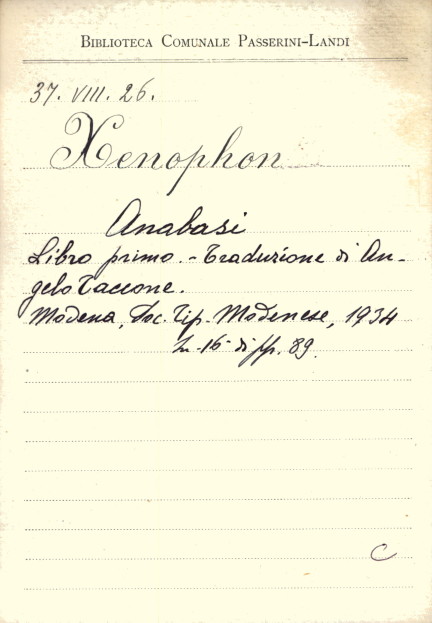 BIBLIOTECA COMUNALE PASSERINI-LANDI
37. VIII. 26.
Xenophon
Anabasi
Libro primo. - Traduzione di An-
gelo Taccone.
Modena, Soc. Tip. Modenese, 1934
In-16° di pp. 89.
C